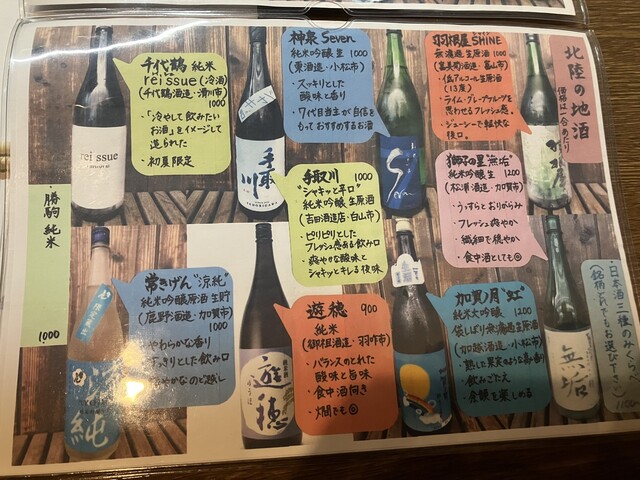 北陸の地酒
価格は一合あたり
千代鶴 純米
reissue(冷酒)
(千代鶴酒造・滑川市)
1000
・「冷やして飲みたい
お酒」をイメージして
造られた
・初夏限定
神泉 Seven
純米吟醸 生 1000
(東酒造・小松市)
・スッキリとした
酸味と香り
・7代目当主が自信を
もっておすすめするお酒
羽根屋 SHINE
無濾過生原酒 1000
(富美菊酒造・富山市)
・低アルコール生原酒
(13度)
・ライム、グレープフルーツを
思わせるフレッシュ感。
・ジューシーで軽快な
後口。
手取川 1000
"シャキッと辛口"
純米吟醸 生原酒
(吉田酒造店・白山市)
・ピリピリとした
フレッシュ感ある飲み口
・爽やかな酸味と
シャキッとキレる後味
獅子の里"無垢"
純米吟醸 生 1200
(松浦酒造・加賀市)
・うすらとおりがらみ
・フレッシュ爽やか
・繊細で穏やか
・食中酒としても◎
・勝駒 純米
1000
常きげん"涼純"
純米吟醸原酒 生貯
(鹿野酒造・加賀市)
1000
やわらかな香り
すっきりとした飲み口
やかなのど越し
遊穂 900
純米
(御祖酒造・羽咋市)
・バランスのとれた
酸味と旨味
・食中酒向き
・燗でも◎
加賀ノ月"虹"
純米大吟醸 1200
袋しぼり無濾過生原酒
(加越酒造・小松市)
・熟した果実のような香り
・飲みごたえ
・余韻を楽しめる
・日本酒三種のみくらべ
(銘柄どれでもお選び下さい)
1100
rei ssue
手取川
Seven
純
遊穂
ゆうほ
無垢